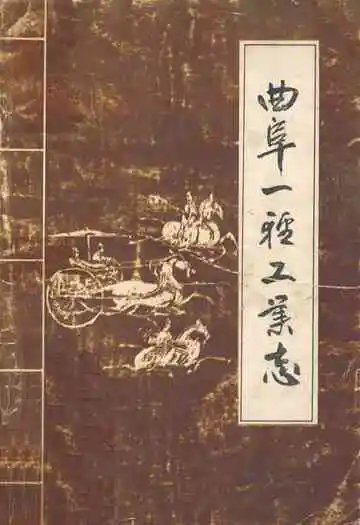 曲阜一轻工业志